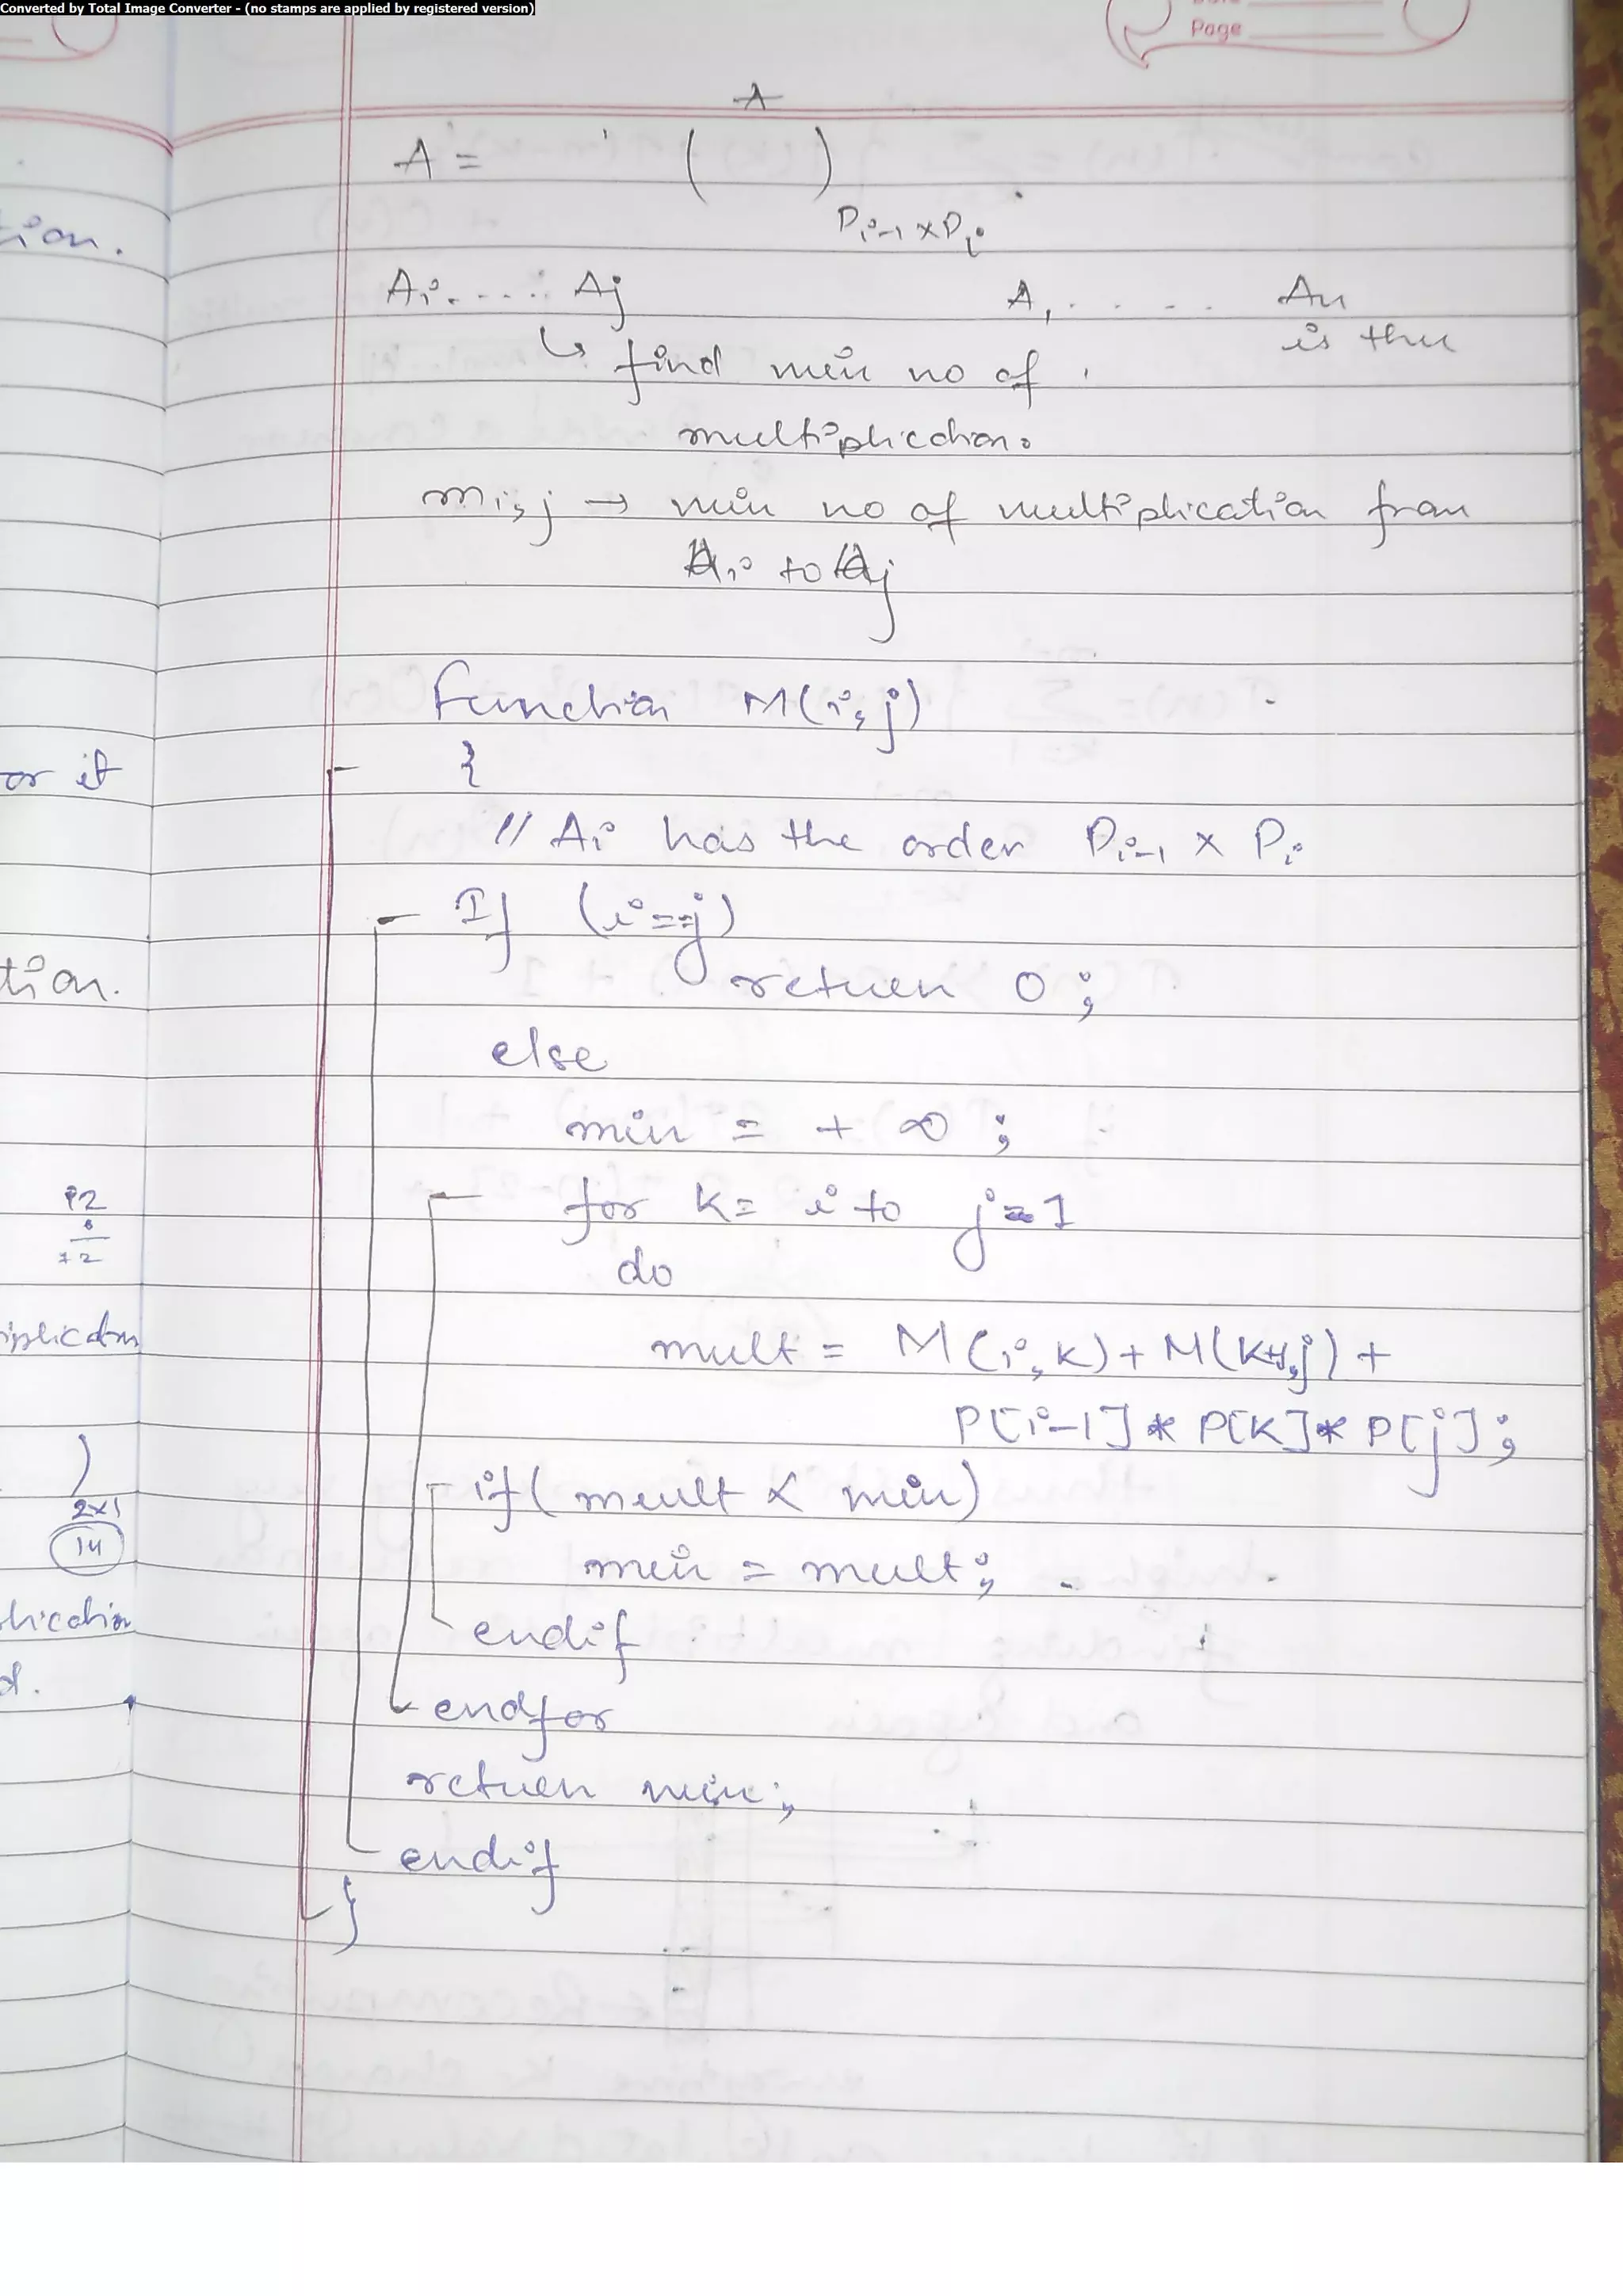 Converted by Total Image Converter - (no stamps are applied by registered version)
Page
A
A = ( )
Pi-1 x Pi
Ai. . . . . Aj A1 . . . . . An
is thu
↳ find min no of
multiplication.
mi,j → min no of multiplication from
Ai to Aj
Function M(i, j)
{
// Ai has the order Pi-1 x Pi
If (i==j)
return 0 ;
else
min = + ∞ ;
for k= i to j-1
do
mult = M(i, k) + M(k+1,j) +
P[i-1] * P[k] * P[j] ;
if( mult < min)
min = mult;
endif
endfor
return min;
endif
}
tion.
or it
tion.
)
2x1
14
d.